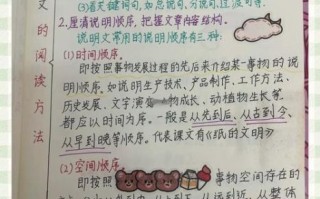 (3)看关键词句,如总说句,分说句,过渡句等.
2.厘清说明顺序,把握文章内容结构.
说明文常用的说明顺序有三种:
(1)时间顺序.
即按照事物发展过程的先后来介绍某一事物的说
明顺序.如说明生产技术,产品制作,工作方法,
历史发展,文字演变,物成长,动植物生长等
都后以时间为序.一般是从先到后、从古到今、
从早到晚等顺序.代表课文有《纸的文明》
(2)空间顺序.
即按照 事物空间存在的
从外到内 从上到 从远到近、从整体
文的阅读方法